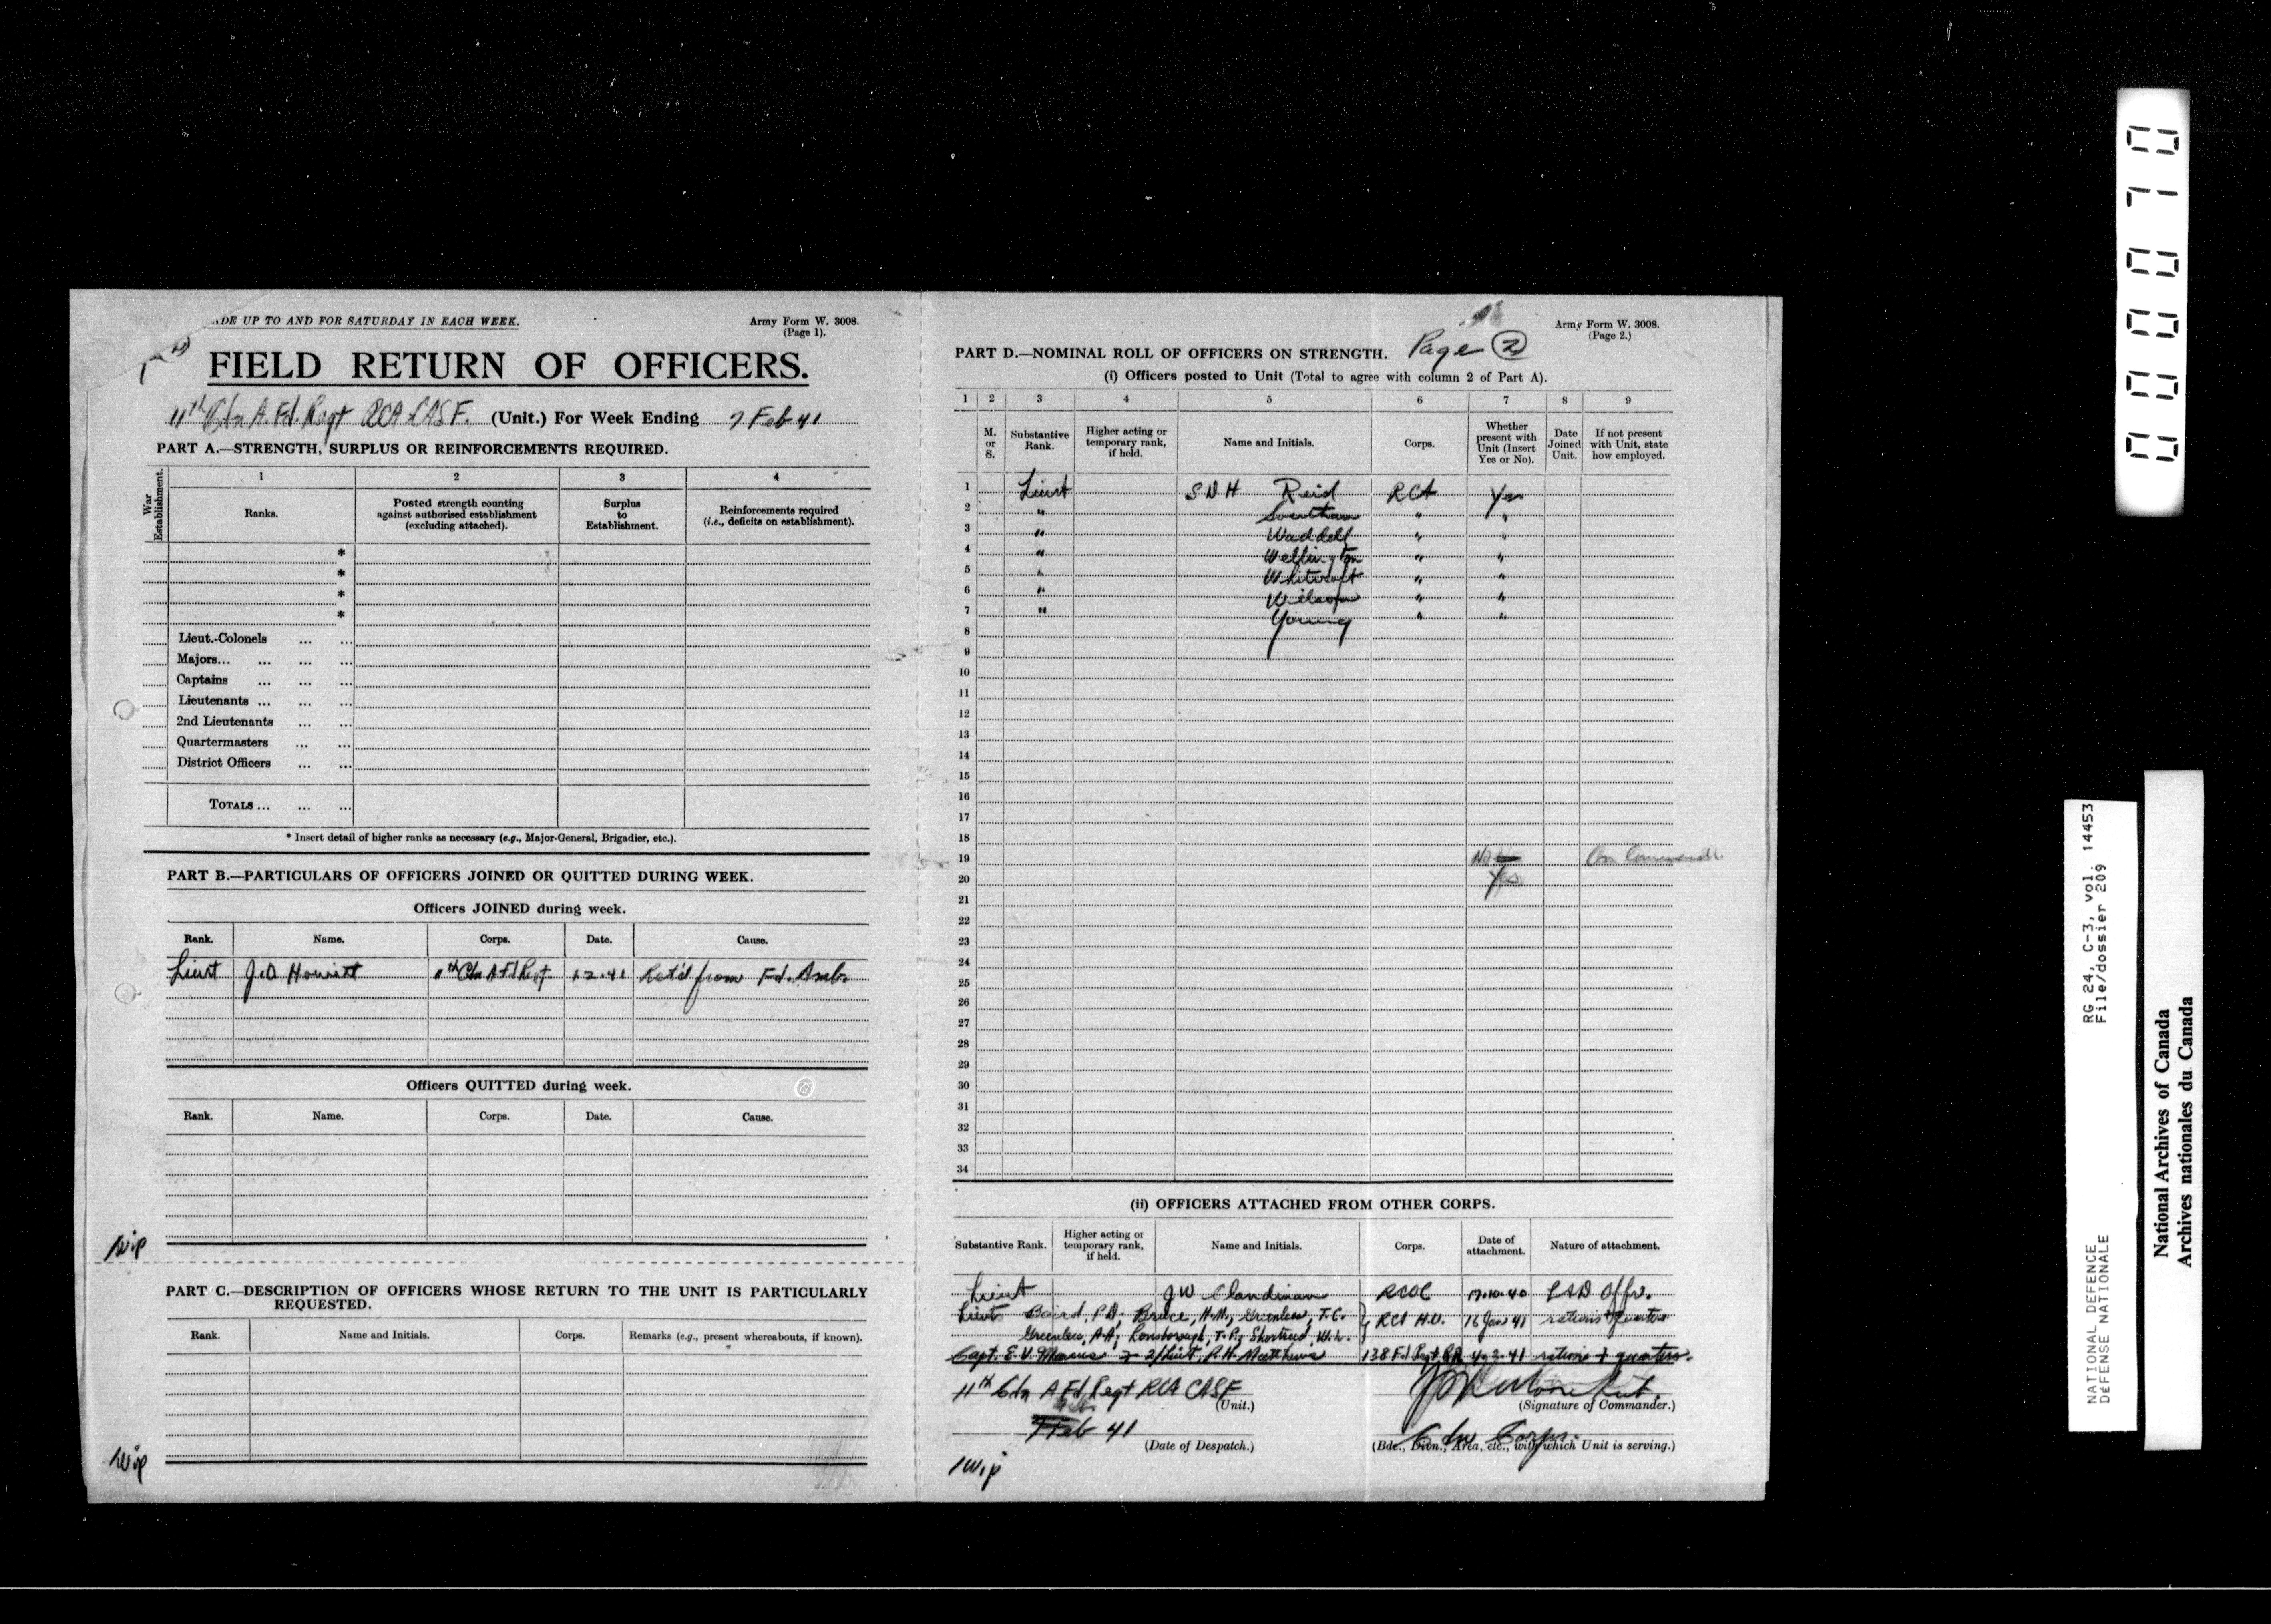 ADE UP TO AND FOR SATURDAY IN EACH WEEK.
Army Form W. 3008.
(Page 1).
FIELD RETURN OF OFFICERS.
11th Cdn A. Fd. Regt RCA CASF. (Unit.) For Week Ending 7 Feb 41
PART A.—STRENGTH, SURPLUS OR REINFORCEMENTS REQUIRED.
War Establishment.
1 2 3 4
Ranks. Posted strength counting against authorised establishment (excluding attached). Surplus to Establishment. Reinforcements required (i.e., deficits on establishment).
*
*
*
*
Lieut.-Colonels ... ...
Majors... ... ... ...
Captains ... ... ...
Lieutenants ... ... ...
2nd Lieutenants ... ...
Quartermasters ... ...
District Officers ... ...
TOTALS ... ... ...
* Insert detail of higher ranks as necessary (e.g., Major-General, Brigadier, etc.).
PART B.—PARTICULARS OF OFFICERS JOINED OR QUITTED DURING WEEK.
Officers JOINED during week.
Rank. Name. Corps. Date. Cause.
Lieut J.D. Howitt 11th Cdn A Fd Regt 1-2-41 Ret'd from Fd. Amb.
Officers QUITTED during week.
Rank. Name. Corps. Date. Cause.
PART C.—DESCRIPTION OF OFFICERS WHOSE RETURN TO THE UNIT IS PARTICULARLY
REQUESTED.
Rank. Name and Initials. Corps. Remarks (e.g., present whereabouts, if known).
Army Form W. 3008.
(Page 2.)
PART D.—NOMINAL ROLL OF OFFICERS ON STRENGTH. Page 2
(i) Officers posted to Unit (Total to agree with column 2 of Part A).
1 2 3 4 5 6 7 8 9
M. or S. Substantive Rank. Higher acting or temporary rank, if held. Name and Initials. Corps. Whether present with Unit (Insert Yes or No). Date Joined Unit. If not present with Unit, state how employed.
1 Lieut S D H Reid RCA Yes
2 " Southam " "
3 " Waddell " "
4 " Wellington " "
5 " Whitcroft " "
6 " Wilson " "
7 " Young " "
8
9
10
11
12
13
14
15
16
17
18
19 No On Command
20 Yes
21
22
23
24
25
26
27
28
29
30
31
32
33
34
(ii) OFFICERS ATTACHED FROM OTHER CORPS.
Substantive Rank. Higher acting or temporary rank, if held. Name and Initials. Corps. Date of attachment. Nature of attachment.
Lieut J W Clandinan RCOC 17.10.40 LAD Offr.
Lieuts Baird, P.D; Bruce, H.M.; Greenlees, T.C. RCA H.U. 16 Jan 41 rations + quarters
Greenlees, A.A; Lonsborough, T.P.; Shortreed, W.W.
Capt. E.V. 2/Lieut, R.H. Matthews 138 Fd Regt RA 4.2.41 rations + quarters.
11th Cdn A Fd Regt RCA CASF
(Unit.)
(Signature of Commander.)
7 Feb 41
(Date of Despatch.)
Cdn Corps.
(Bde., Divn., Area, etc., with which Unit is serving.)
000070
RG 24, C-3, vol. 14453
File/dossier 209
NATIONAL DEFENCE
DÉFENSE NATIONALE
National Archives of Canada
Archives nationales du Canada